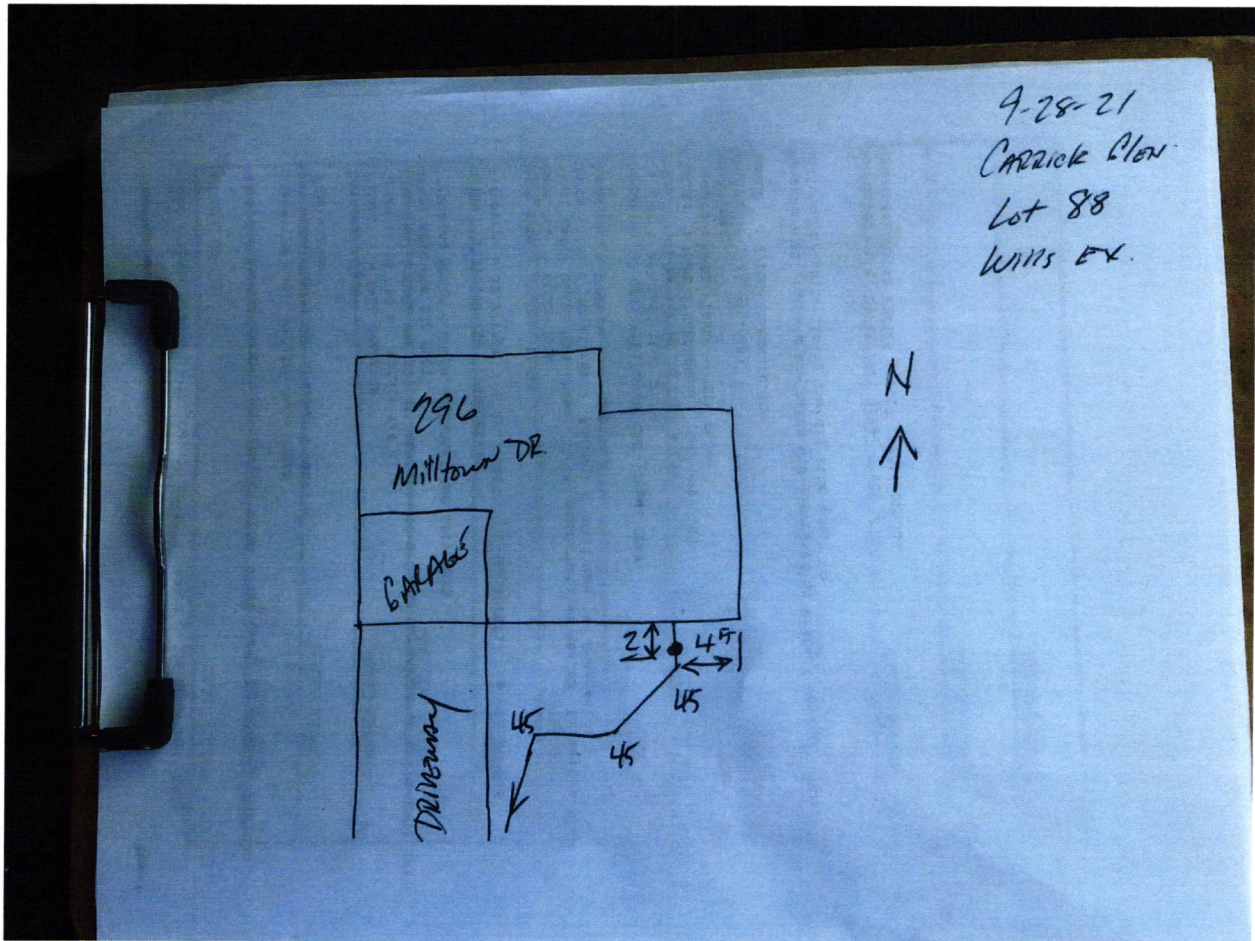 9-28-21
CARRICK GLEN.
Lot 88
Wills EX.
N
296
Milltown DR.
GARAGE
2
4 FT
45
45
45
DRIVEWAY